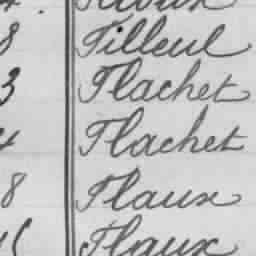 8 Filleul
3 Flachet
4 Flachet
8 Flaux
Flaux